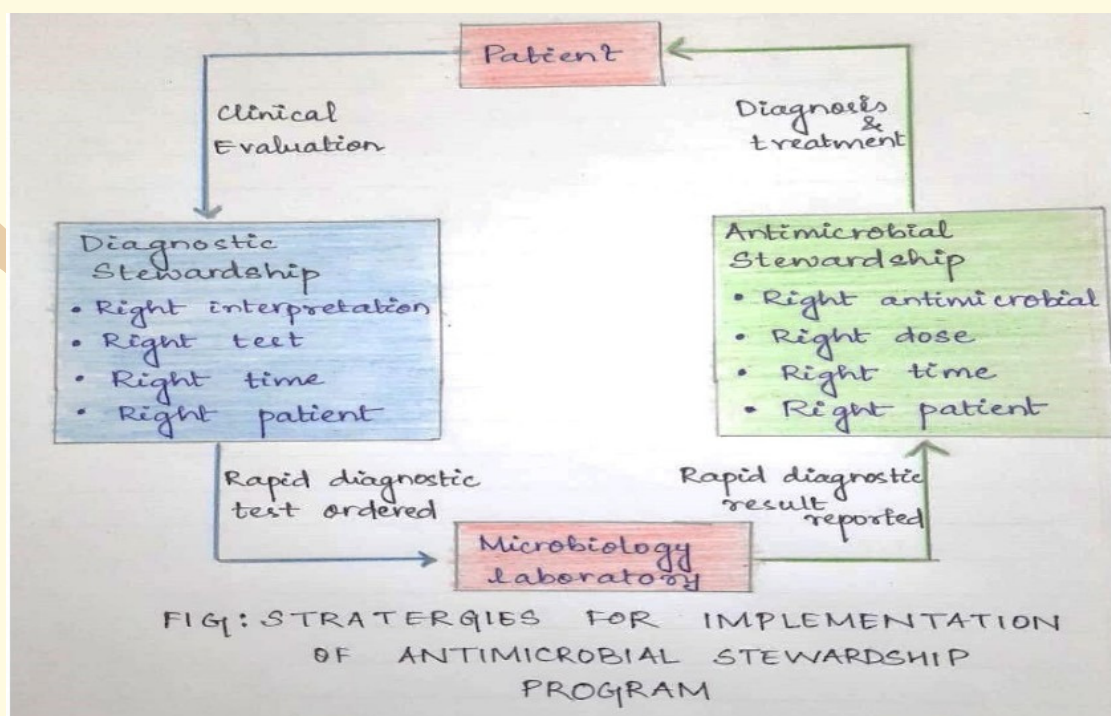 Patient
Clinical
Evaluation
Diagnosis
&
treatment
Diagnostic
Stewardship
• Right interpretation
• Right test
• Right time
• Right patient
Antimicrobial
Stewardship
• Right antimicrobial
• Right dose
• Right time
• Right patient
Rapid diagnostic
test ordered
Rapid diagnostic
result
reported
Microbiology
laboratory
FIG: STRATERGIES FOR IMPLEMENTATION
OF ANTIMICROBIAL STEWARDSHIP
PROGRAM